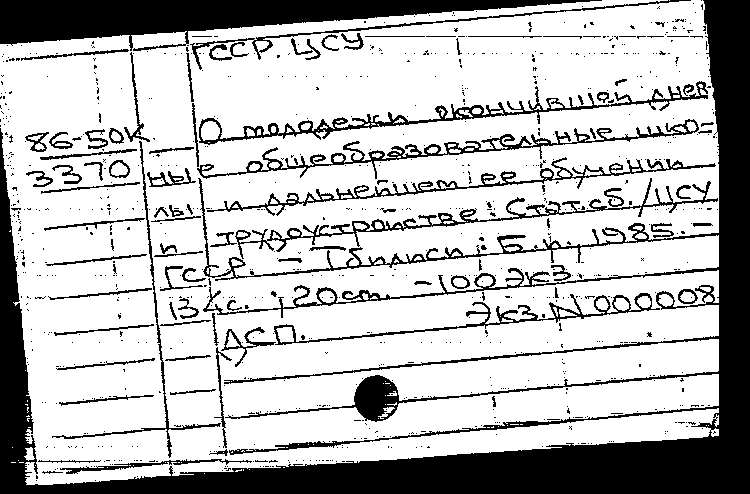 ГССР. ЦСУ.
86-50К
3370
О молодежи окончившей днев-
ные общеобразовательные шко=
лы и дальнейшем ее обучении
и трудоустройстве: Стат.сб./ЦСУ
ГССР. – Тбилиси: Б.и., 1985. –
134с.; 20см. – 100 экз.
Экз. N 000008
ДСП.